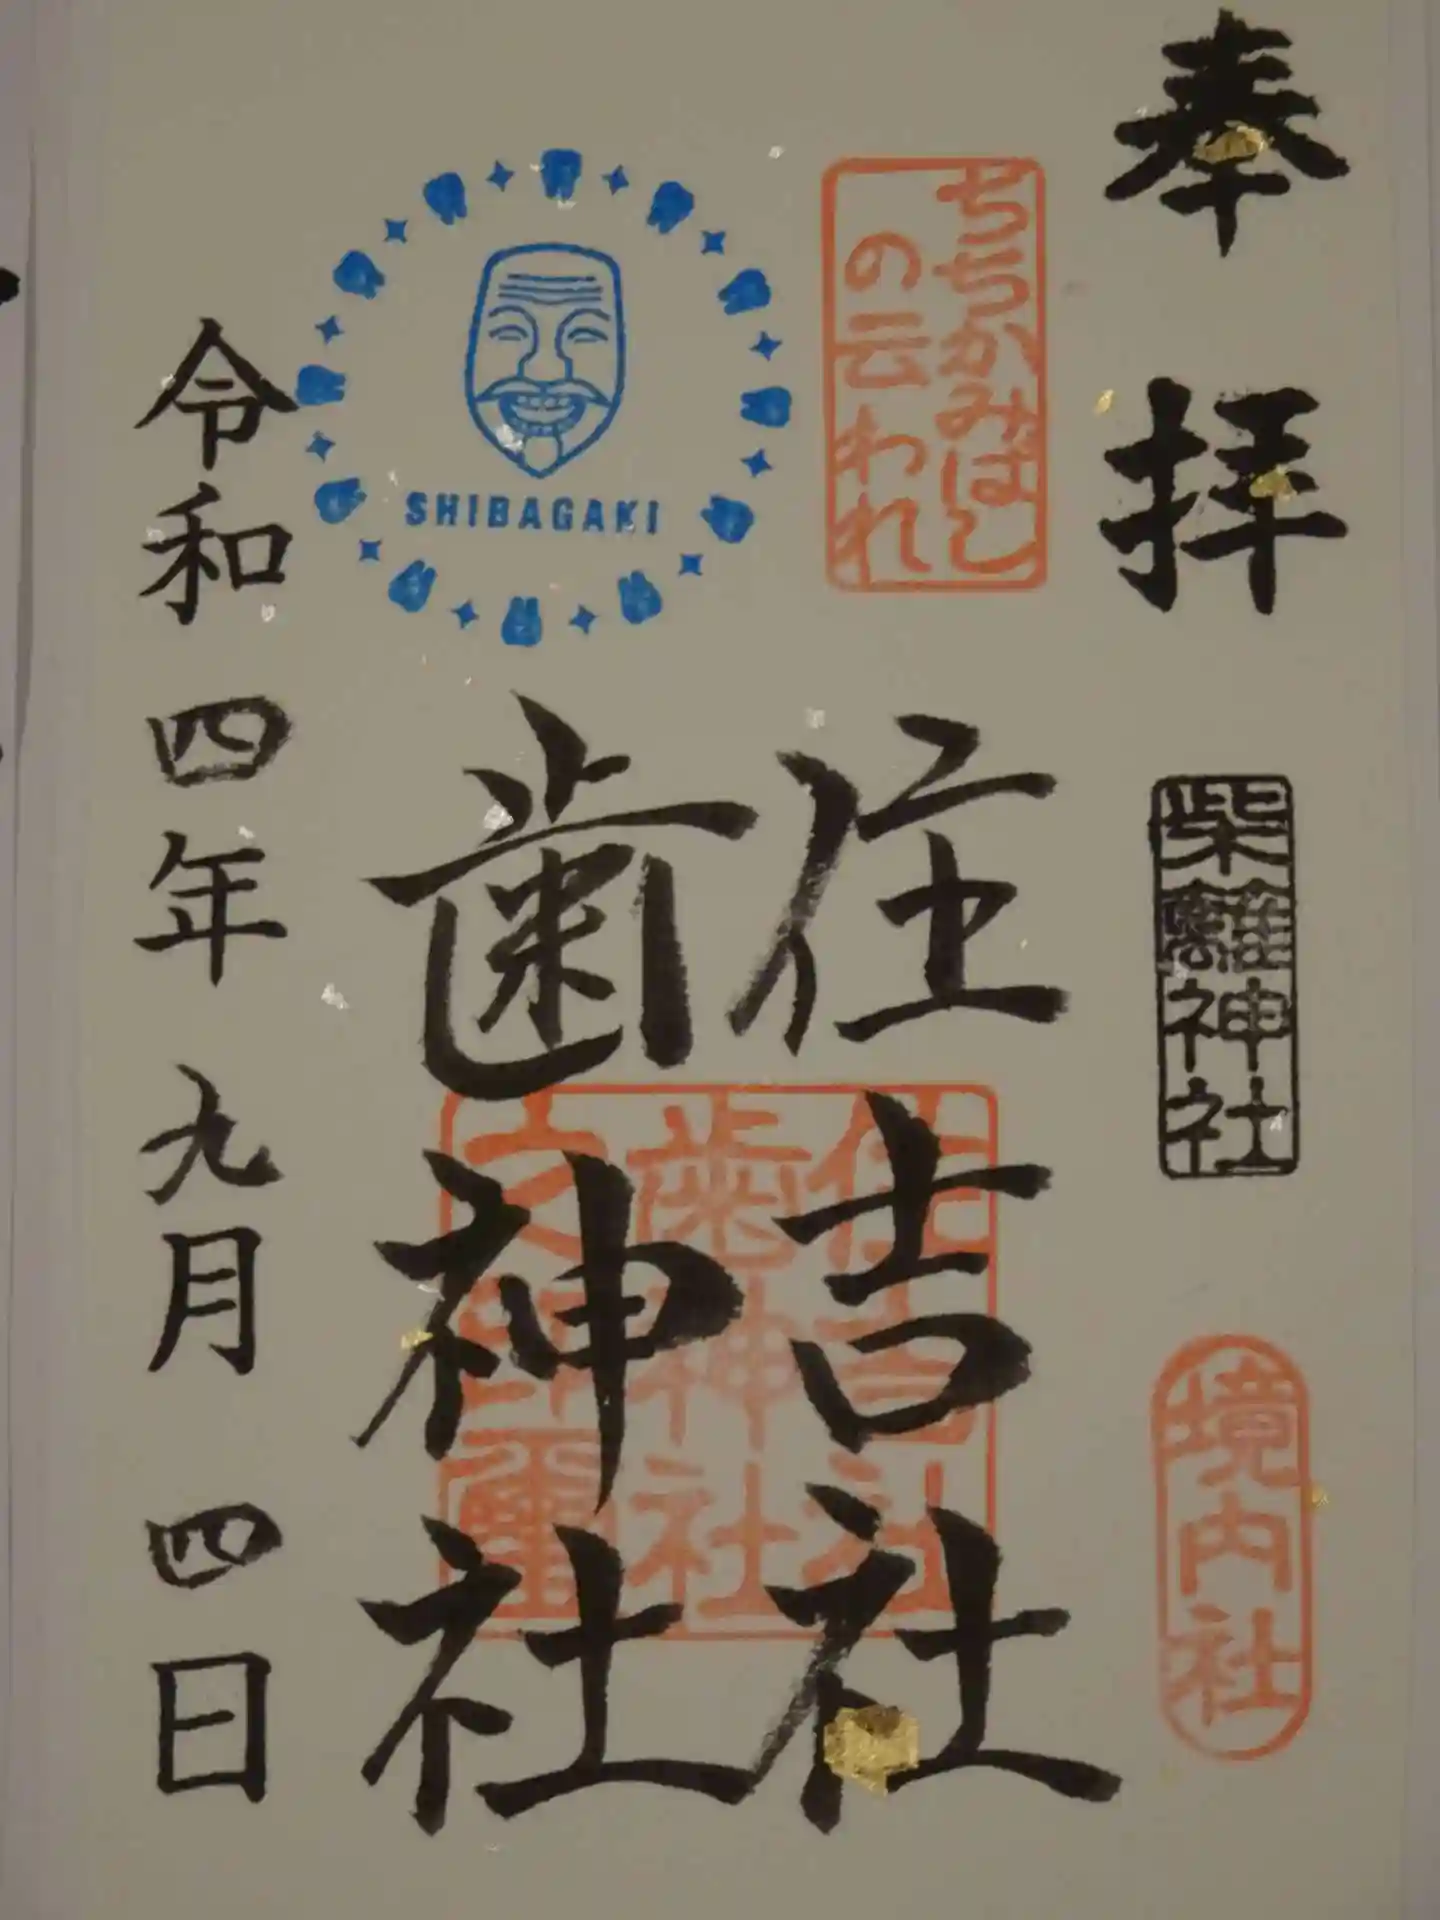 奉拝
柴籬神社
境内社
ちちかみばし
の云われ
住吉社
歯神社
住吉社
歯神社
之印璽
SHIBAGAKI
令和四年九月四日